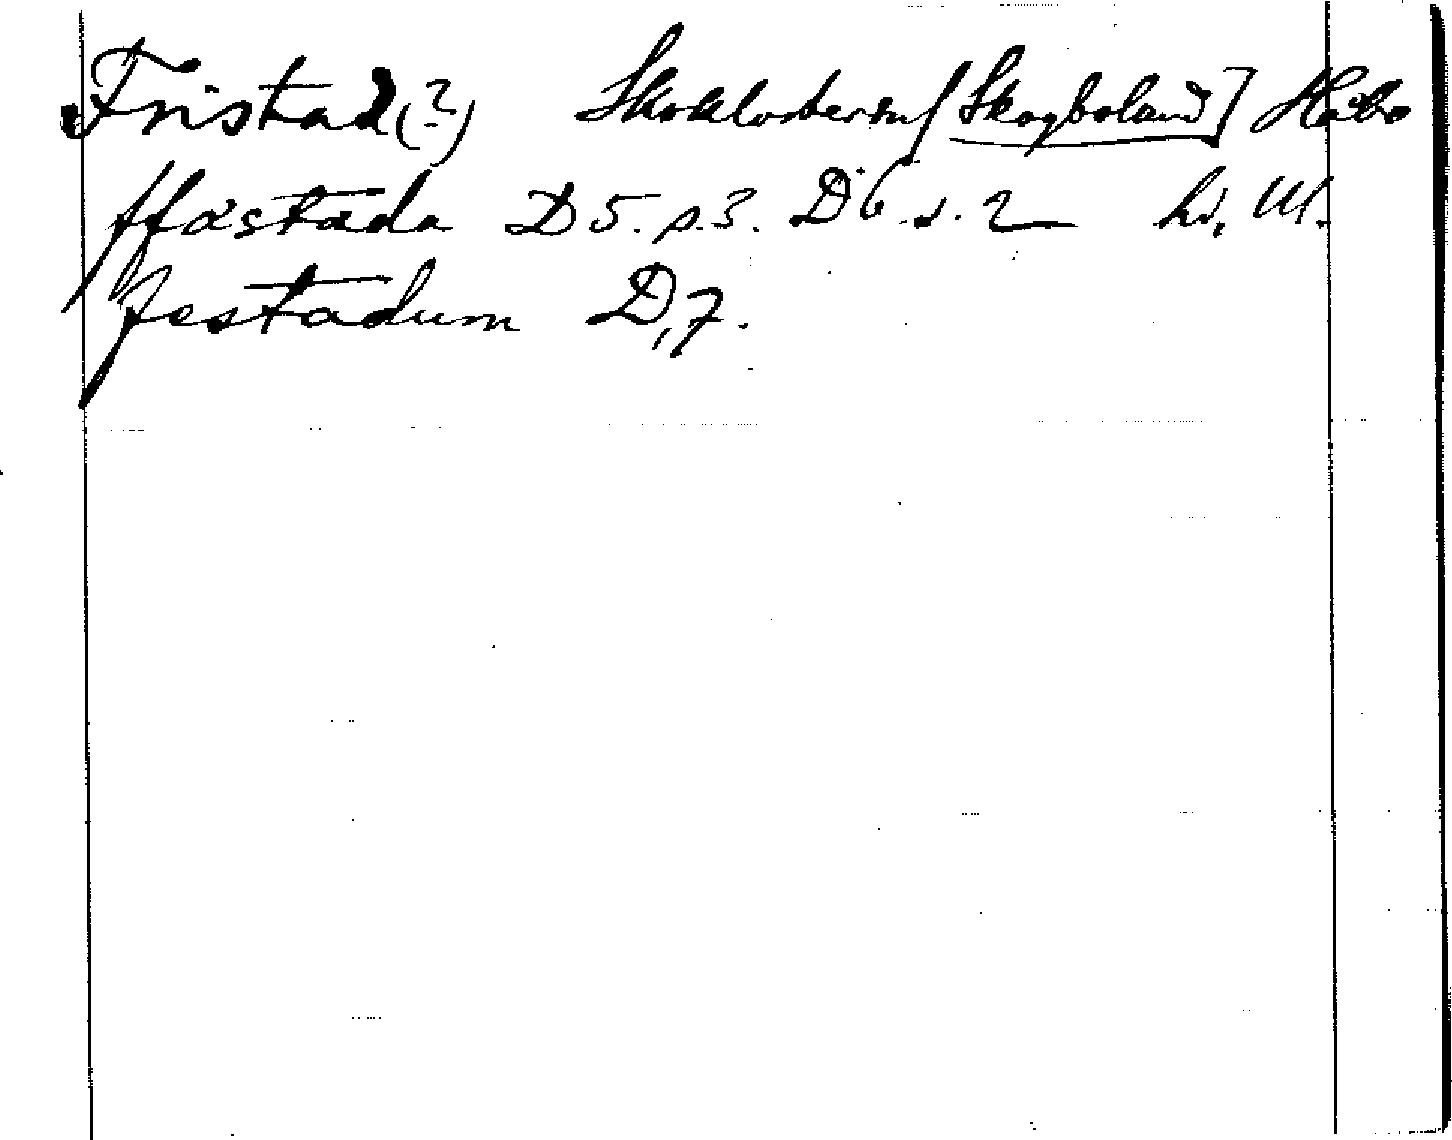 Fristad (?) Skoklosters sn [Skogboland] Håbo
ffästada D 5. s. 3. D 6 s. 2 hd, U.
festadum D, 7.